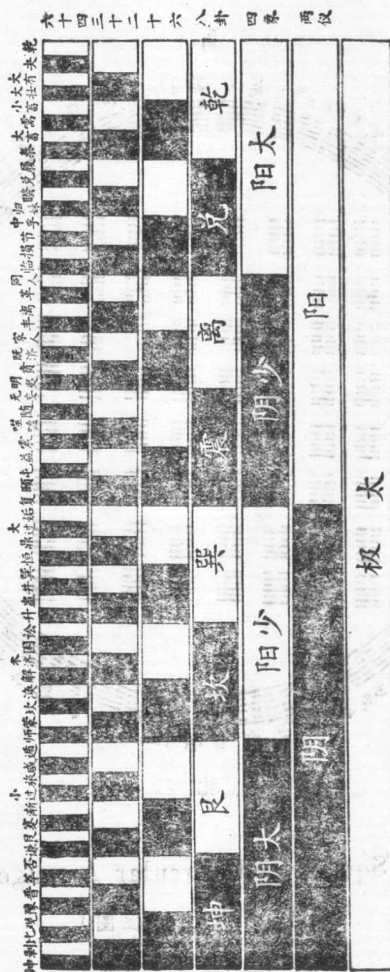 六十四 三十二 十六 八卦 四象 两仪
乾夬大有大壮小畜需大畜泰履兑睽归妹中孚节损临同人革离丰家人既济贲明夷无妄随噬嗑震益屯颐复姤大过鼎恒巽井蛊升讼困未济解涣坎蒙师遁咸旅小过渐蹇艮谦否萃晋豫观比剥坤
乾 兑 离 震 巽 坎 艮 坤
太阳 少阴 少阳 太阴
阳 阴
太极